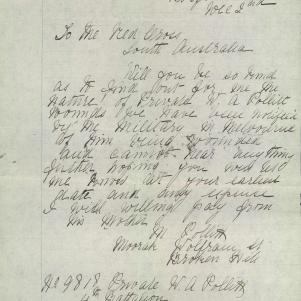 Dec 2nd
To the Red Cross
South Australia
Will you be so kind
as to find out for me the
nature of Private W. A Pollitt
wounds we have been notified
by the Military in Melbourne
of him being wounded
and cannot hear anything
further hoping you will let
me know at your earliest
date and any expence
I will willing pay from
his Mother
M Pollitt
Wolfram St
Broken Hill
No 9818 Private W A Pollitt
4th Battalion